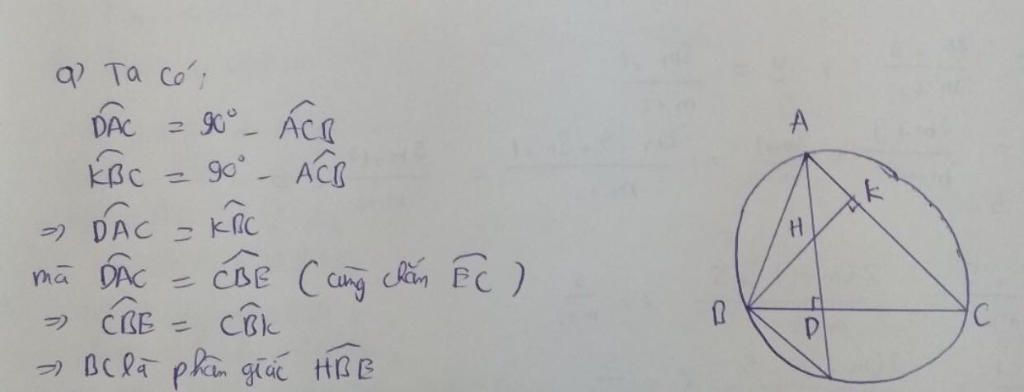 a) Ta có:
D̂AC = 90° - ÂCB
K̂BC = 90° - ÂCB
=> D̂AC = K̂BC
mà D̂AC = ĈBE (cùng chắn E͡C)
=> ĈBE = ĈBK
=> BC là phân giác ĤBE
A
K
H
B
D
C